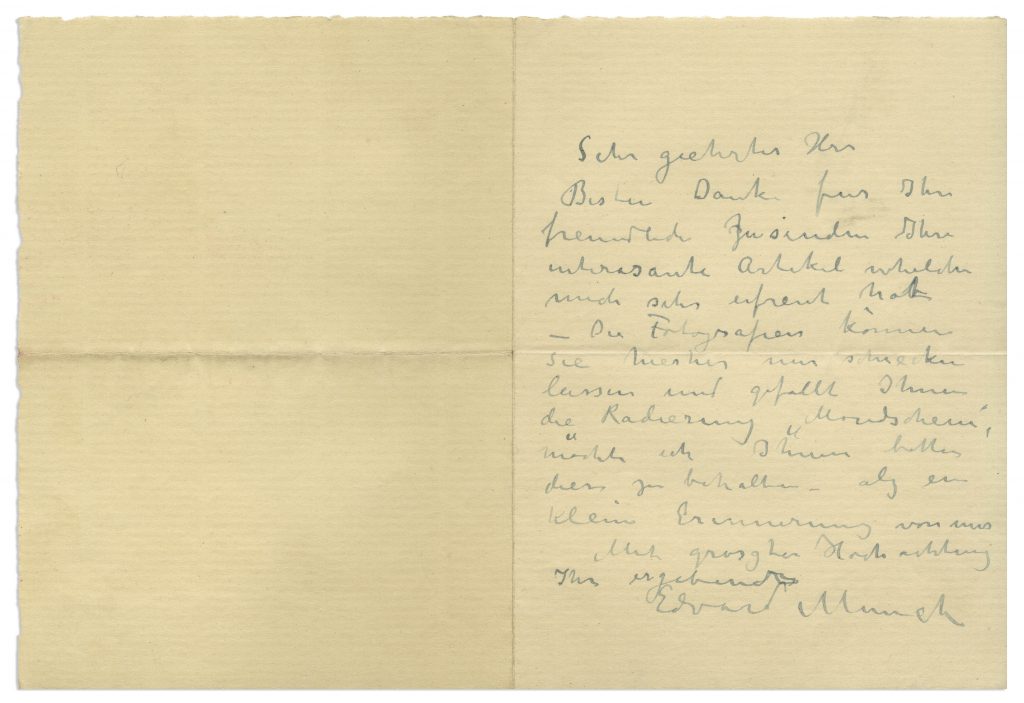 Sehr geehrter Herr
Besten Danke fur Ihre
freundliche Zusenden Ihre
interasante Artikel whelche
mich sehr erfreut hat
– Die Fotografien können
Sie hierher nur schicken
lassen und gefallt Ihnen
die Radierung „Mondschein",
möchte ich Ihnen bitten
diese zu behalten – als ein
klein Erinnerung von mir
Mit grosster Hochachtung
Ihr ergebender
Edvard Munch